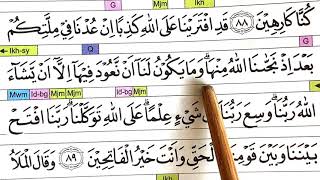 G Mjm Ikh
كُنَّا كَارِهِيْنَ ۝٨٨ قَدِ افْتَرَيْنَا عَلَى اللّٰهِ كَذِبًا اِنْ عُدْنَا فِيْ مِلَّتِكُمْ
Ikh-sy Q G
بَعْدَ اِذْ نَجّٰىنَا اللّٰهُ مِنْهَاۗ وَمَا يَكُوْنُ لَنَآ اَنْ نَّعُوْدَ فِيْهَآ اِلَّآ اَنْ يَّشَاۤءَ
Mwm Id-bg Mjm Id-bg Mjm
اللّٰهُ رَبُّنَاۗ وَسِعَ رَبُّنَا كُلَّ شَيْءٍ عِلْمًاۗ عَلَى اللّٰهِ تَوَكَّلْنَاۗ رَبَّنَا افْتَحْ
بَيْنَنَا وَبَيْنَ قَوْمِنَا بِالْحَقِّ وَاَنْتَ خَيْرُ الْفَاتِحِيْنَ ۝٨٩ وَقَالَ الْمَلَاُ
Ikh